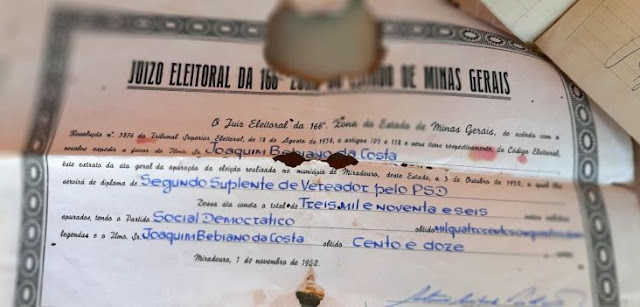 JUIZO ELEITORAL DA 166ª ZONA DO ESTADO DE MINAS GERAIS
O Juiz Eleitoral da 166ª. Zona do Estado de Minas Gerais, de acordo com a
Resolução nº. 5876 do Tribunal Superior Eleitoral, de 18 de Agosto de 1958, e artigos 103 e 118 e seus itens respectivamente, do Código Eleitoral,
resolve expedir a favor do Ilmo. Sr. Joaquim Bebiano da Costa
este extrato da ata geral da apuração da eleição realizada no município de Miradouro, deste Estado, a 3 de Outubro de 1958, o qual lhe
servirá de diploma de Segundo Suplente de Vereador pelo PSD
Dessa ata consta o total de Treis mil e noventa e seis
apurados, tendo o Partido Social Democratico obtido mil quatrocentos
legendas e o Ilmo. Sr. Joaquim Bebiano da Costa obtido Cento e doze
Miradouro, 1 de novembro de 1958.